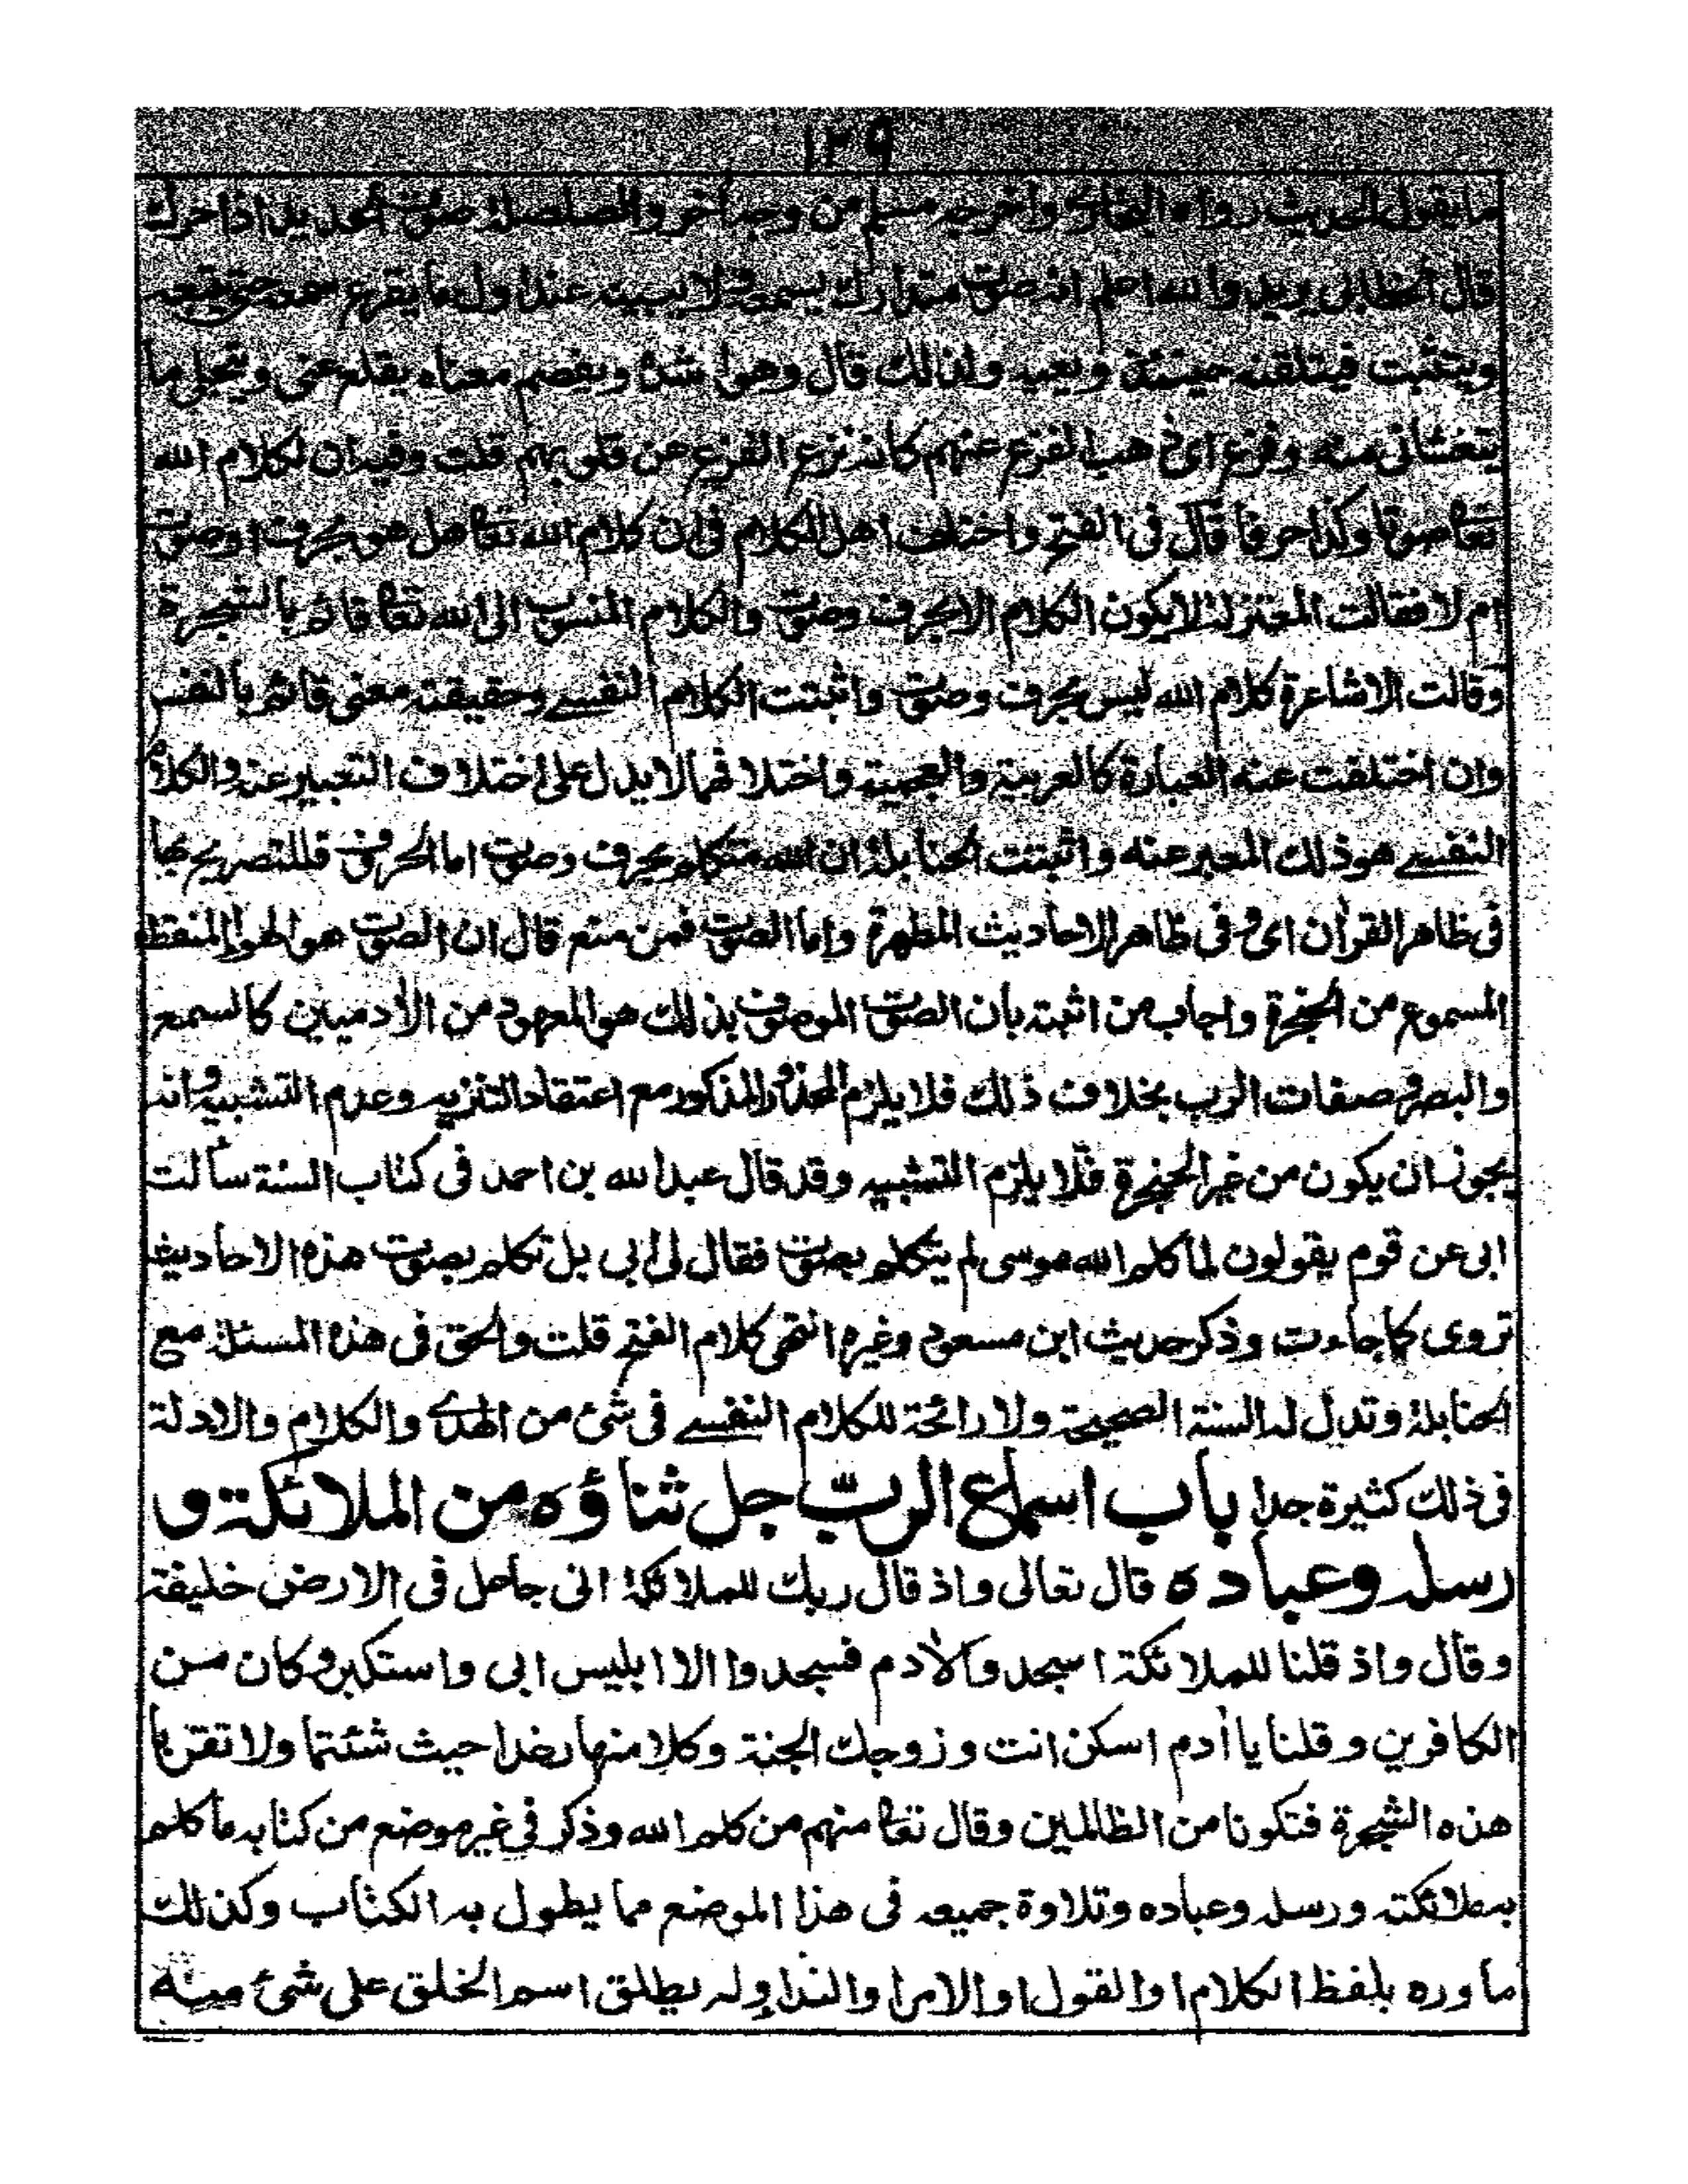 ١٣٩
ما يقول الحديث رواه البخاري واخرجه مسلم من وجه آخر والصلصلة صوت الحديد اذا حرك
قال الخطابي يريد والله اعلم انه صوت متدارك يسمعه ولا يتبينه عند اول ما يقرع سمعه حتى يتفهمه
ويتثبت فيتلقنه حينئذ ويعيه ولذلك قال وهو اشد ويفصم معناه يقلع عني ويتجلى ما
يتغشاني منه وفزع اى ذهب الفزع عنهم كانه نزع الفزع عن قلوبهم قلت وفيه ان لكلام الله
تعا صوتا وكذا حرفا قال فى الفتح واختلف اهل الكلام فى ان كلام الله تعا هل هو بحرف او صوت
ام لا فقالت المعتزلة لا يكون الكلام الا بحرف وصوت والكلام المنسوب الى الله تعا قائم بالشجرة
وقالت الاشاعرة كلام الله ليس بحرف وصوت واثبتت الكلام النفسے وحقيقته معنى قائم بالنفس
وان اختلفت عنه العبارة كالعربية والعجمية واختلافهما لا يدل على اختلاف التعبير عنه والكلام
النفسے هو ذلك المعبر عنه واثبتت الحنابلة ان الله متكلم بحرف وصوت اما الحروف فللتصريح بها
فى ظاهر القرآن اى وفى ظاهر الاحاديث المطهرة واما الصوت فمن منع قال ان الصوت هو الهواء المنقطع
المسموع من الحنجرة واجاب من اثبته بان الصوت الموصوف بذلك هو المعهود من الآدميين كالسمع
والبصر وصفات الرب بخلاف ذلك فلا يلزم المحذور المذكور مع اعتقاد التنزيه وعدم التشبيه وانه
يجوز ان يكون من غير الحنجرة فلا يلزم التشبيه وقد قال عبد الله بن احمد فى كتاب السنة سألت
ابى عن قوم يقولون لما كلم الله موسى لم يتكلم بصوت فقال لى ابى بل تكلم بصوت هذه الاحاديث
تروى كما جاءت وذكر حديث ابن مسعود وغيره انتهى كلام الفتح قلت والحق فى هذه المسئلة مع
الحنابلة وتدل له السنة الصحيحة ولا رائحة للكلام النفسے فى شئ من الهدے والكلام والادلة
فى ذلك كثيرة جدا باب اسماع الرب جل ثناؤه من الملائكة و
رسله وعباده قال تعالى واذ قال ربك للملائكة انى جاعل فى الارض خليفة
وقال واذ قلنا للملائكة اسجدوا لآدم فسجدوا الا ابليس ابى واستكبر وكان من
الكافرين وقلنا يا آدم اسكن انت وزوجك الجنة وكلا منها رغدا حيث شئتما ولا تقربا
هذه الشجرة فتكونا من الظالمين وقال تعا منهم من كلم الله وذكر فى غير موضع من كتابه ما كلم
به ملائكته ورسله وعباده وتلاوة جميعه فى هذا الموضع مما يطول به الكتاب وكذلك
ما ورد بلفظ الكلام او القول او الامر او النداء ولم يطلق اسم الخلق على شئ منه